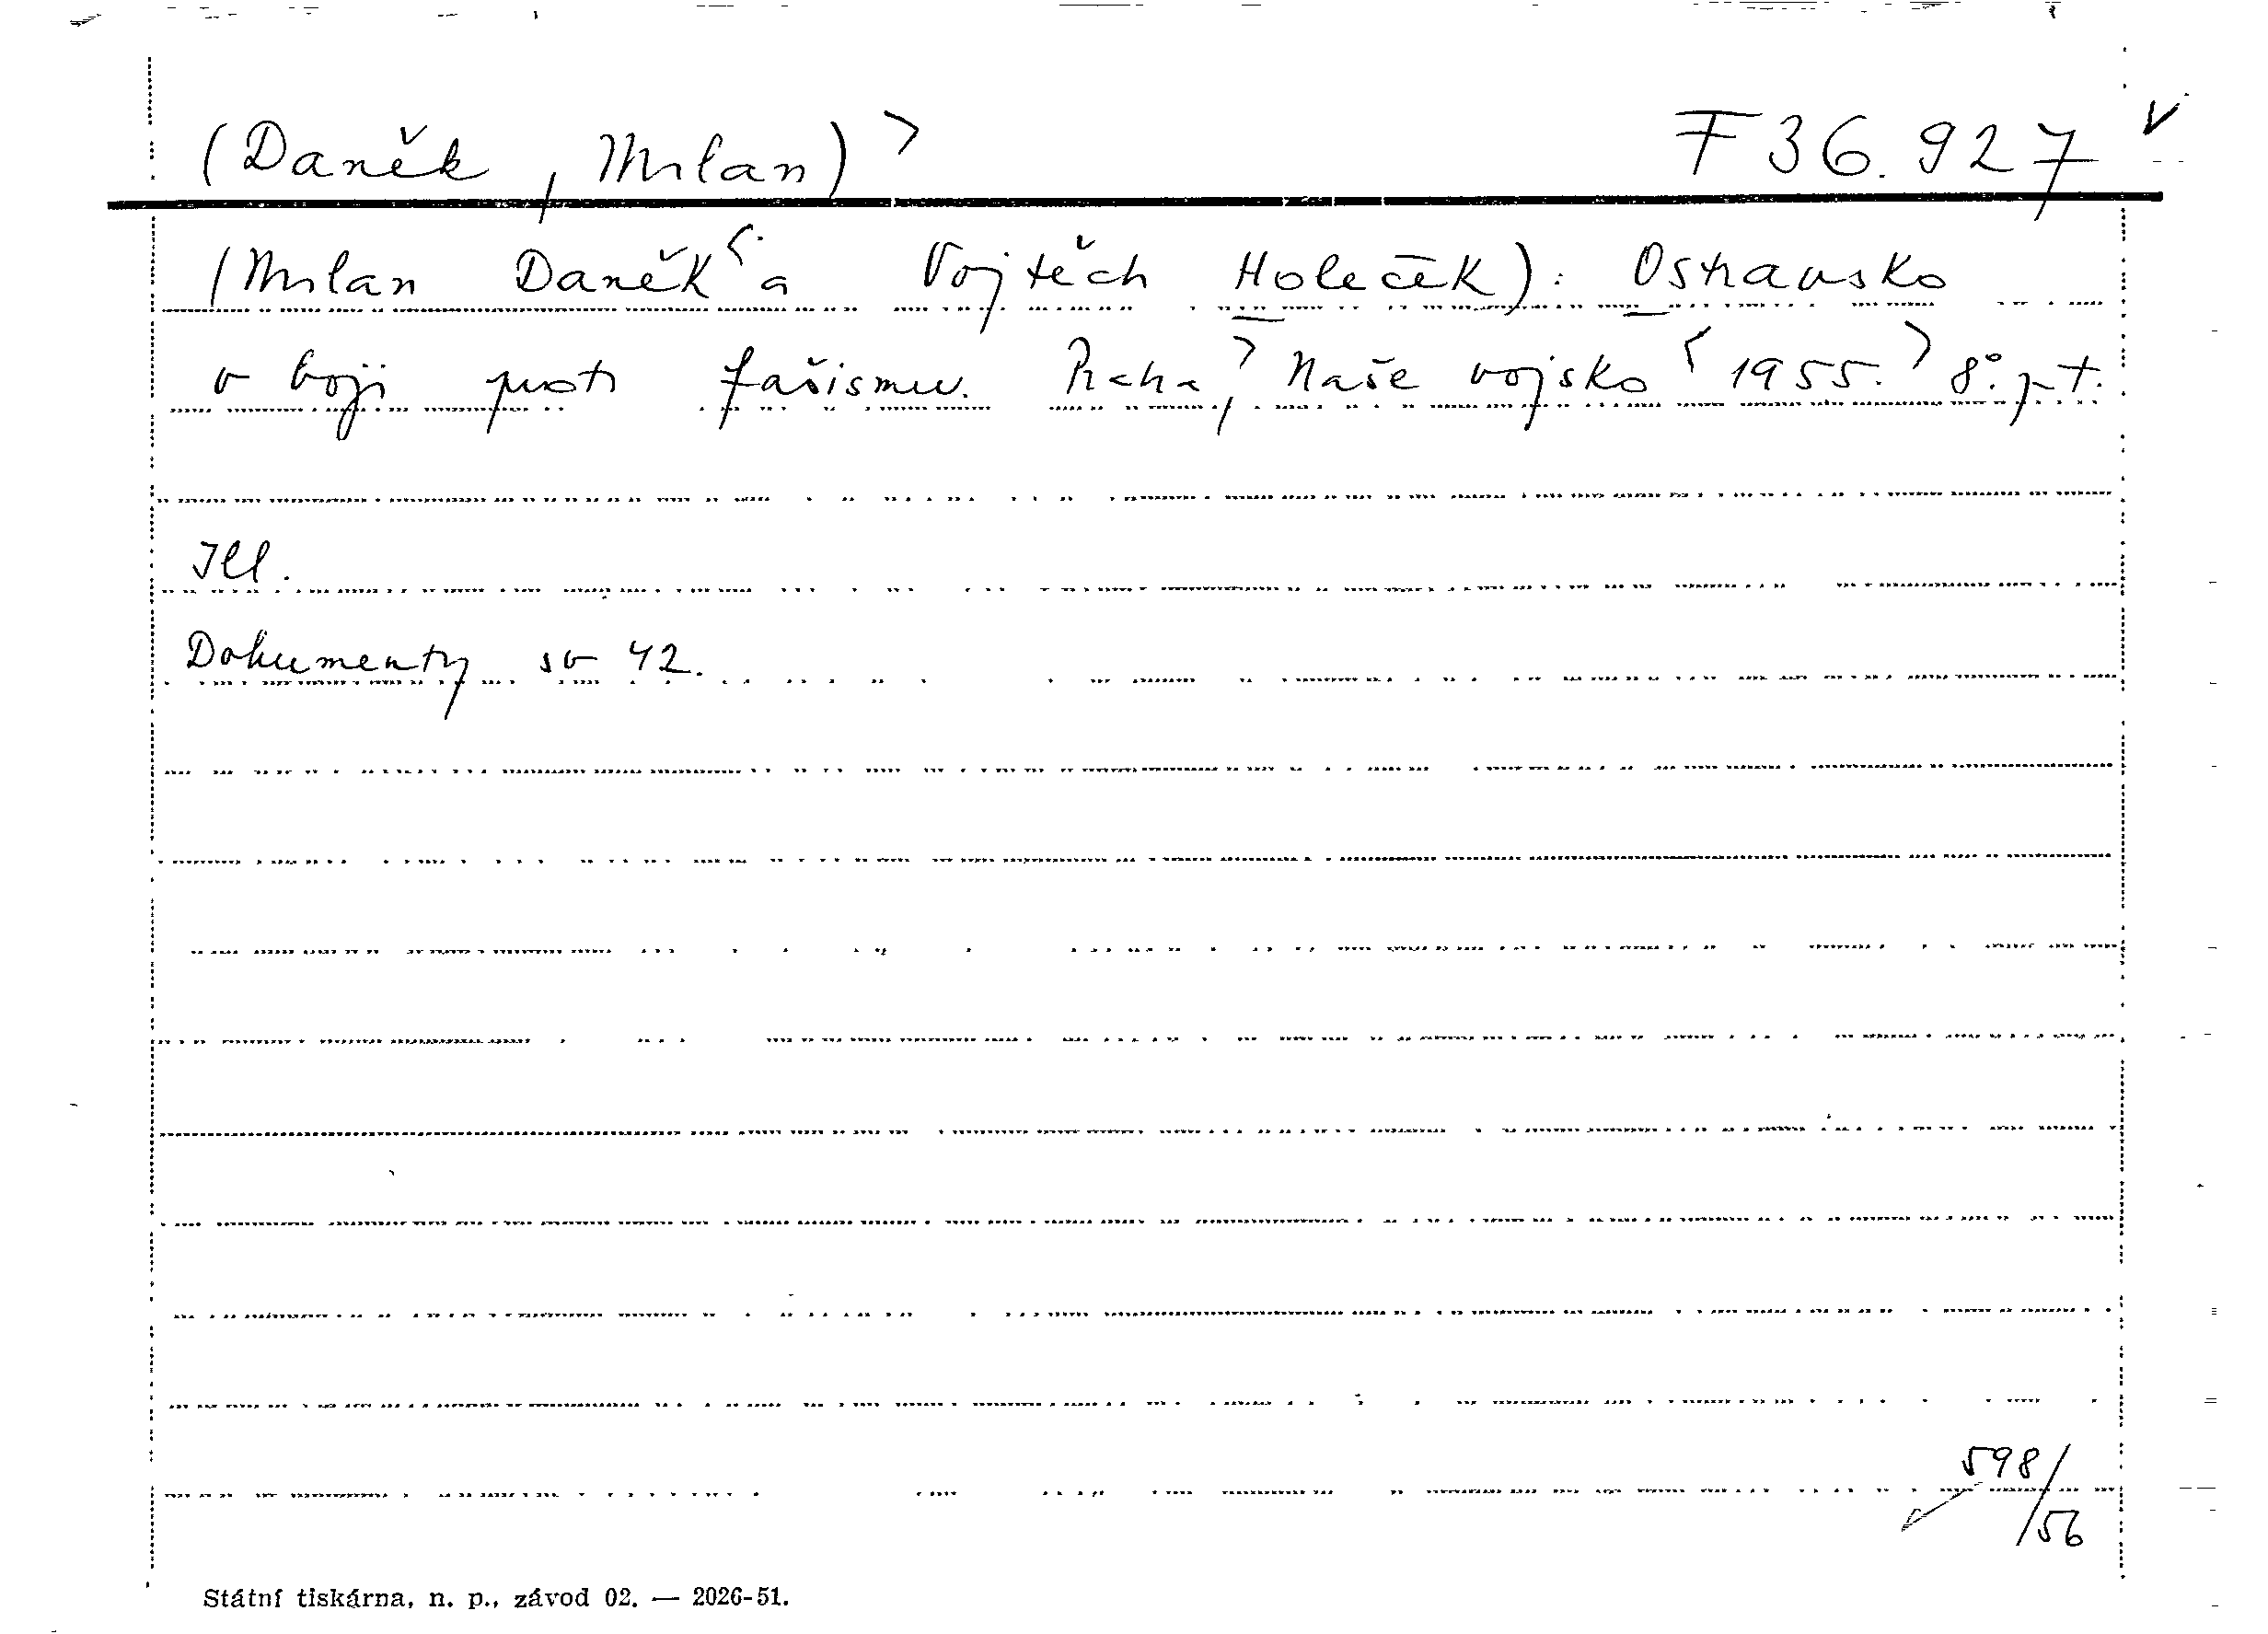 (Daněk, Milan) > F 36.927 v
(Milan Daněk < a Vojtěch Holeček): Ostravsko
v boji proti fašismu. Praha, > Naše vojsko < 1955. > 8°. p. t.
Ill.
Dokumenty sv 42.
598/56
Státní tiskárna, n. p., závod 02. — 2026-51.